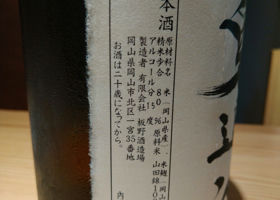 本酒
原材料名 米(岡山県産)、米麹(岡山
精米歩合 80% 原料米 山田錦10
アルコール分15度
製造者 有限会社 板野酒造場
岡山県岡山市北区一宮35番地
お酒は二十歳になってから。
内